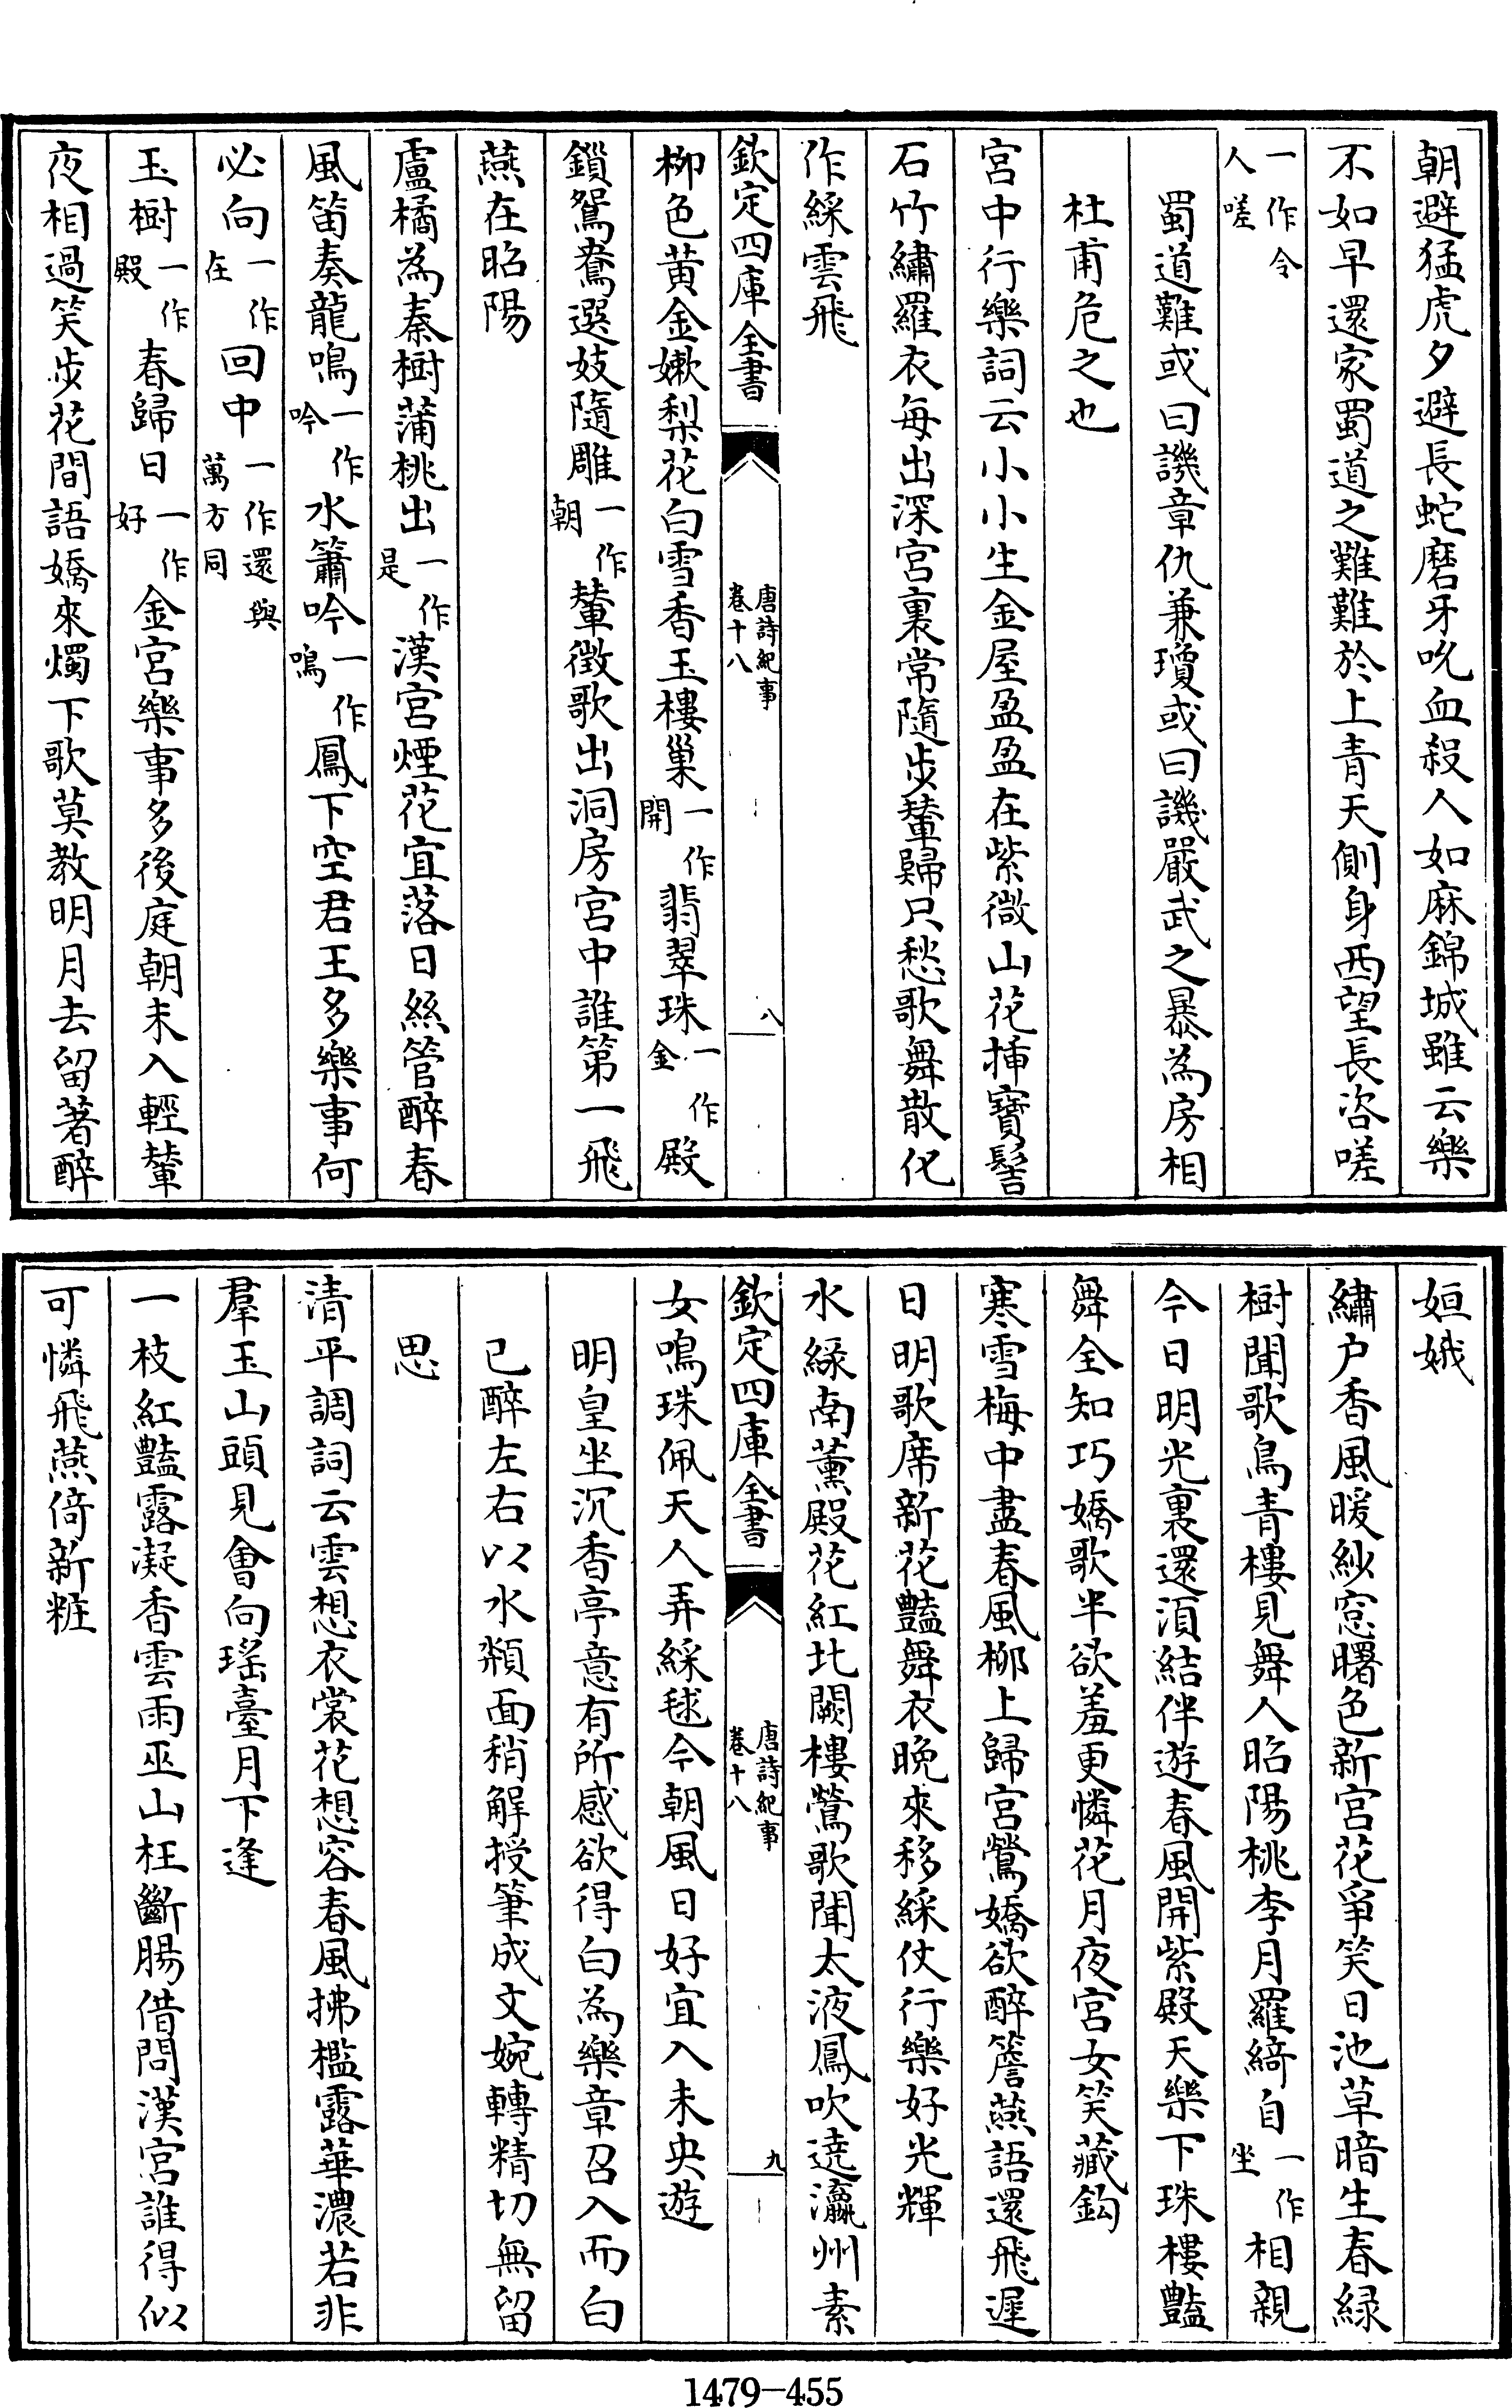 朝避猛虎夕避長蛇磨牙吮血殺人如麻錦城雖云樂
不如早還家蜀道之難難於上青天側身西望長咨嗟
一作令人嗟
蜀道難或曰譏章仇兼瓊或曰譏嚴武之暴為房相
杜甫危之也
宮中行樂詞云小小生金屋盈盈在紫微山花揷寶髻
石竹繡羅衣每出深宮裏常隨步輦歸只愁歌舞散化
作綵雲飛
欽定四庫全書
唐詩紀事
卷十八
八
柳色黃金嫩梨花白雪香玉樓巢一作開翡翠珠一作金殿
鎖鴛鴦選妓隨雕一作朝輦徴歌出洞房宮中誰第一飛
燕在昭陽
盧橘為秦樹蒲桃出一作是漢宮煙花宜落日絲管醉春
風笛奏龍鳴一作吟水簫吟一作鳴鳳下空君王多樂事何
必向一作在回中一作還與萬方同
玉樹一作殿春歸日一作好金宮樂事多後庭朝未入輕輦
夜相過笑步花間語嬌來燭下歌莫教明月去留著醉
姮娥
繡户香風暖紗窓曙色新宮花爭笑日池草暗生春緑
樹聞歌鳥青樓見舞人昭陽桃李月羅綺自一作坐相親
今日明光裏還湏結伴遊春風開紫殿天樂下珠樓豔
舞全知巧嬌歌半欲羞更憐花月夜宮女笑藏鈎
寒雪梅中盡春風柳上歸宮鶯嬌欲醉簷燕語還飛遲
日明歌席新花豔舞衣晚來移綵仗行樂好光輝
水緑南薰殿花紅北闕樓鶯歌聞太液鳳吹遶瀛州素
欽定四庫全書
唐詩紀事
卷十八
九
女鳴珠佩天人弄綵毬今朝風日好宜入未央遊
明皇坐沉香亭意有所感欲得白為樂章召入而白
已醉左右以水頮面稍解授筆成文婉轉精切無留
思
清平調詞云雲想衣裳花想容春風拂檻露華濃若非
羣玉山頭見會向瑤臺月下逢
一枝紅豔露凝香雲雨巫山枉斷腸借問漢宮誰得似
可憐飛燕倚新粧
1479-455